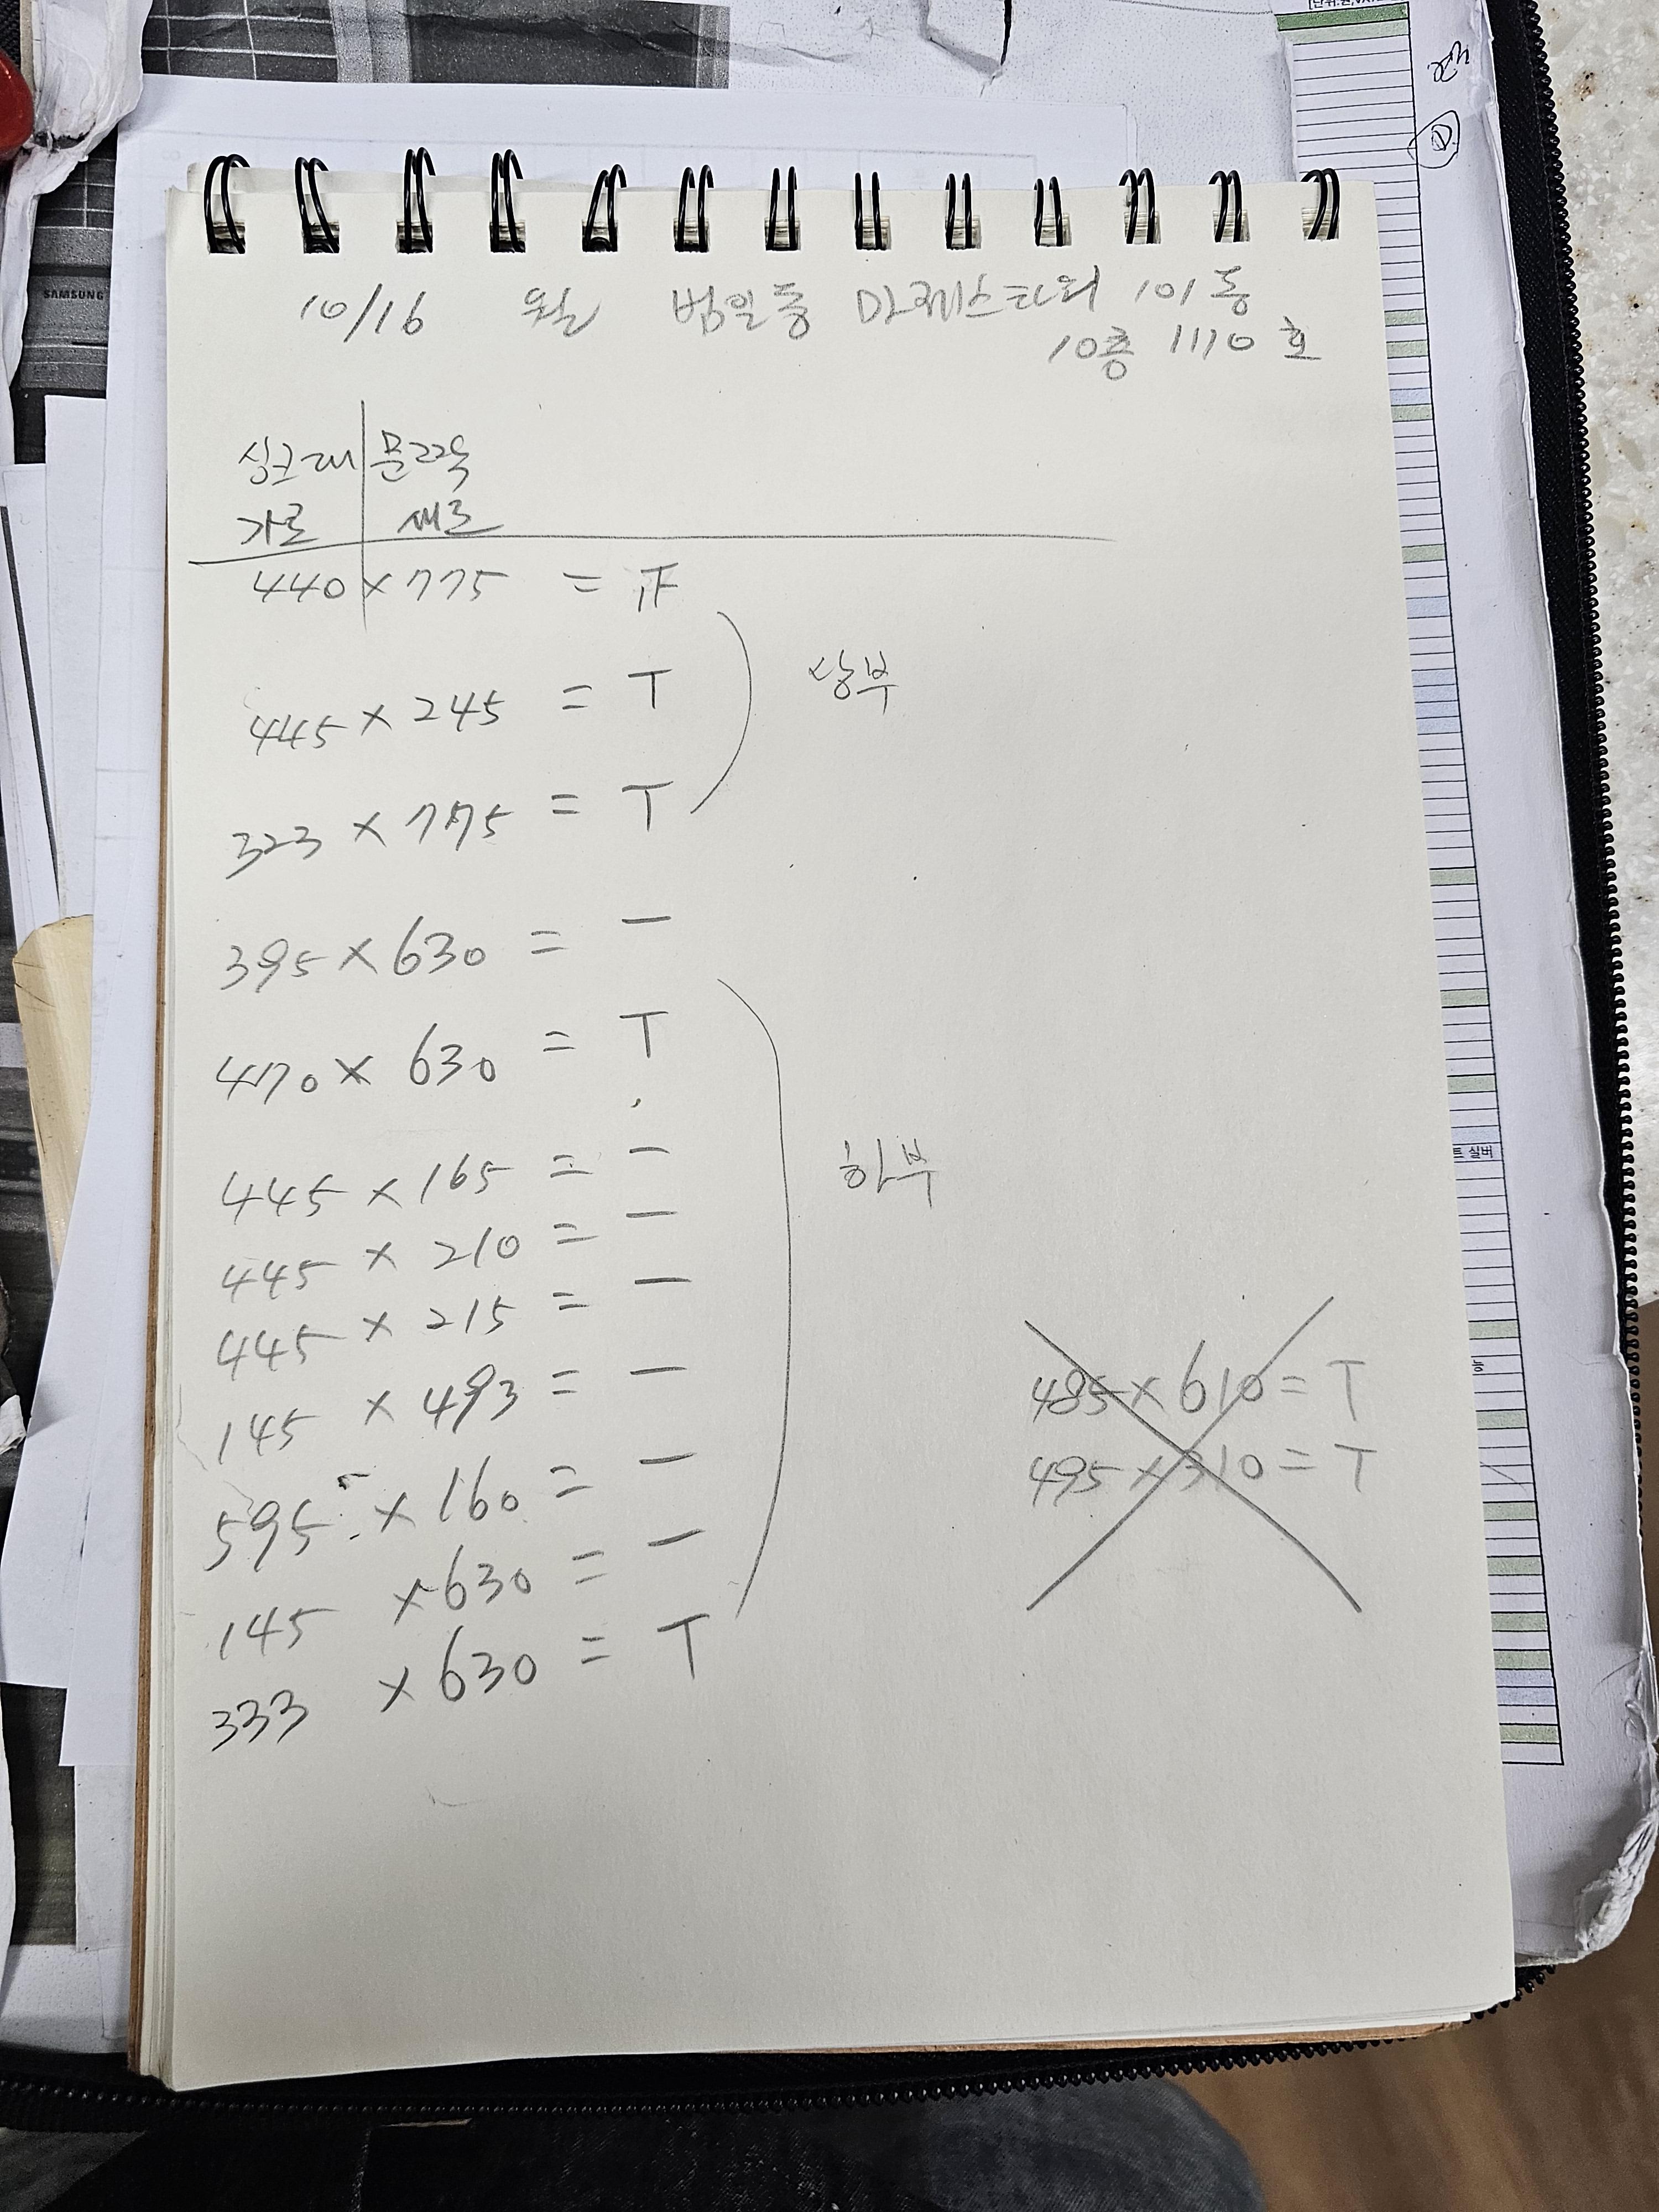 10/16 월 범일동 마제스타워 101동
10층 1110호
싱크대 문짝
가로 세로
440 × 775 = 正
445 × 245 = T
상부
323 × 775 = T
395 × 630 = 一
470 × 630 = T
445 × 165 = 一
하부
445 × 210 = 一
445 × 215 = 一
145 × 493 = 一
595 × 160 = 一
145 × 630 = 一
333 × 630 = T
485 × 610 = T
495 × 310 = T
SAMSUNG
트 실버